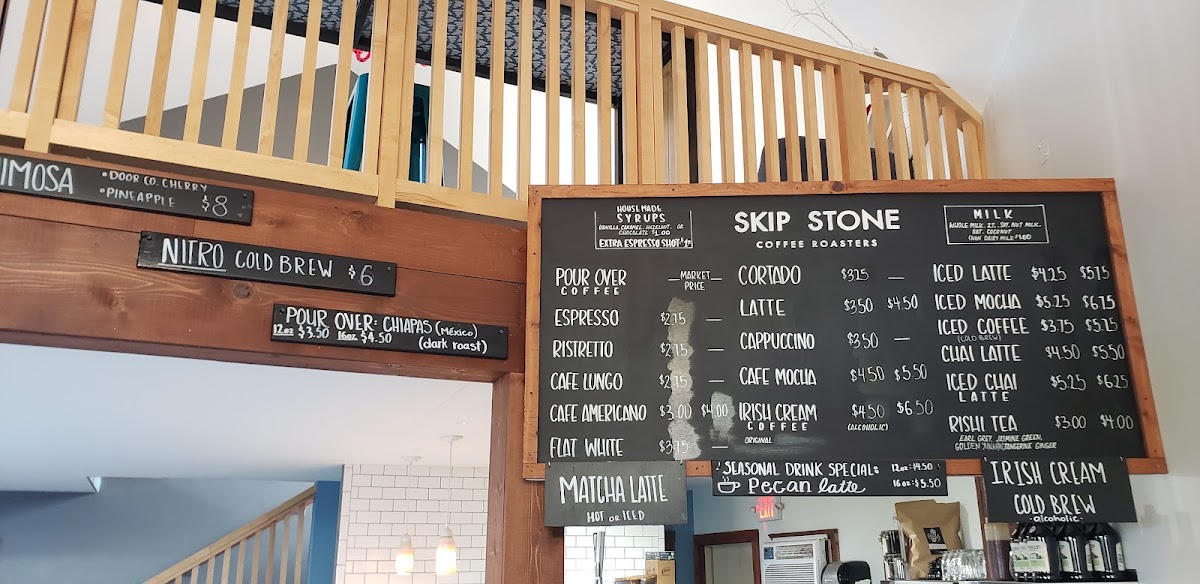 IMOSA
• DOOR CO. CHERRY
• PINEAPPLE
$8
NITRO COLD BREW $6
POUR OVER: CHIAPAS (MÉXICO)
12oz $3.50 16oz $4.50 (dark roast)
HOUSE MADE
SYRUPS
VANILLA, CARAMEL, HAZELNUT, OR
CHOCOLATE $1.00
EXTRA ESPRESSO SHOT
SKIP STONE
COFFEE ROASTERS
MILK
WHOLE MILK, 2%, SKIM, NUT MILK,
OAT, COCONUT
(NON DAIRY MILK $1.00
POUR OVER
COFFEE
— MARKET PRICE —
ESPRESSO $2.75 —
RISTRETTO $2.75 —
CAFE LUNGO $2.75 —
CAFE AMERICANO $3.00 $4.00
FLAT WHITE $3.75 —
CORTADO $3.25 —
LATTE $3.50 $4.50
CAPPUCCINO $3.50 —
CAFE MOCHA $4.50 $5.50
IRISH CREAM $4.50 $6.50
COFFEE (ALCOHOLIC)
ORIGINAL
ICED LATTE $4.25 $5.75
ICED MOCHA $5.25 $6.75
ICED COFFEE $3.75 $5.75
(COLD BREW)
CHAI LATTE $4.50 $5.50
ICED CHAI $5.25 $6.25
LATTE
RISHI TEA $3.00 $4.00
EARL GREY, JASMINE GREEN,
GOLDEN TANGERINE GINGER
MATCHA LATTE
HOT OR ICED
SEASONAL DRINK SPECIAL: 12oz: $4.50
Pecan latte 16oz: $5.50
IRISH CREAM
COLD BREW
-alcoholic-
EXIT